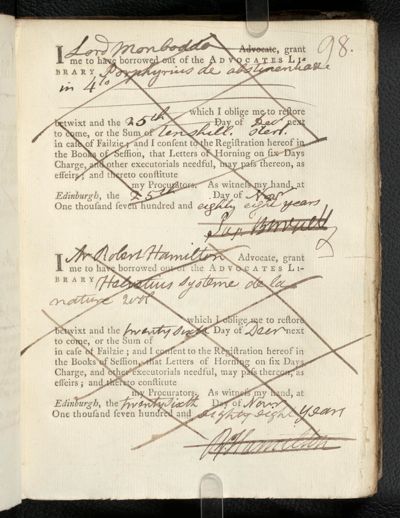 98.
I Lord Monboddo Advocate, grant
me to have borrowed out of the ADVOCATES LI-
BRARY Porphyrius de abstinentia
in 4to
which I oblige me to reſtore
betwixt and the 25th Day of Decr next
to come, or the Sum of ten shill. Sterl.
in caſe of Failzie; and I conſent to the Regiſtration hereof in
the Books of Seſſion, that Letters of Horning on ſix Days
Charge, and other executorials needful, may paſs thereon, as
effeirs; and thereto conſtitute
my Procurators. As witneſs my hand, at
Edinburgh, the 25th Day of Novr
One thouſand ſeven hundred and eighty eight years
Ja. Burnett
I Mr Robert Hamilton Advocate, grant
me to have borrowed out of the ADVOCATES LI-
BRARY Helvetius Systeme de la
nature 2 vol
which I oblige me to reſtore
betwixt and the twenty sixth Day of Decr next
to come, or the Sum of
in caſe of Failzie; and I conſent to the Regiſtration hereof in
the Books of Seſſion, that Letters of Horning on ſix Days
Charge, and other executorials needful, may paſs thereon, as
effeirs; and thereto conſtitute
my Procurators. As witneſs my hand, at
Edinburgh, the twenty sixth Day of Novr
One thouſand ſeven hundred and eighty eight years
R Hamilton